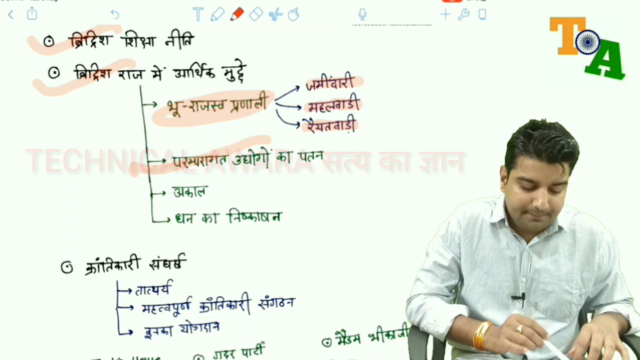 T A
⊙ ब्रिटिश शिक्षा नीति
⊙ ब्रिटिश राज में आर्थिक मुद्दे
भू-राजस्व प्रणाली
जमींदारी
महलवाडी
रैयतवाड़ी
TECHNICAL AWARA सत्य का ज्ञान
परम्परागत उद्योगों का पतन
अकाल
धन का निष्काषन
⊙ क्रांतिकारी संघर्ष
तात्पर्य
महत्वपूर्ण क्रांतिकारी संगठन
इनका योगदान
गदर पार्टी
मैडम भीकाजी